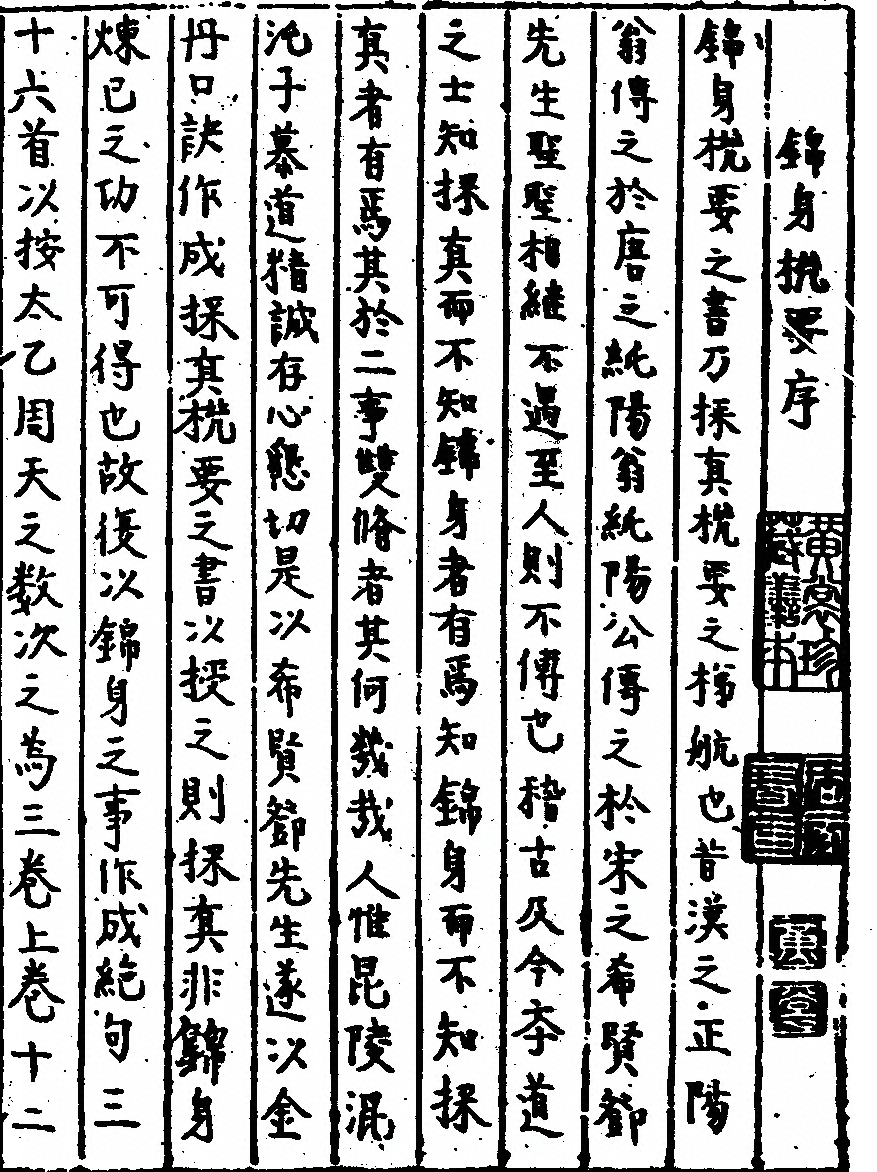 錦身機要序
錦身機要之書乃採真機要之梯航也昔漢之正陽
翁傳之於唐之純陽翁純陽公傳之於宋之希賢鄧
先生聖聖相繼不遇至人則不傳也稽古及今夲道
之士知採真而不知錦身者有焉知錦身而不知採
真者有焉其於二事雙脩者其何幾哉人惟昆陵混
沌子慕道精誠存心懇切是以希賢鄧先生遂以金
丹口訣作成採真機要之書以授之則採真非錦身
煉己之功不可得也故復以錦身之事作成絶句三
十六首以按太乙周天之数次之為三卷上卷十二